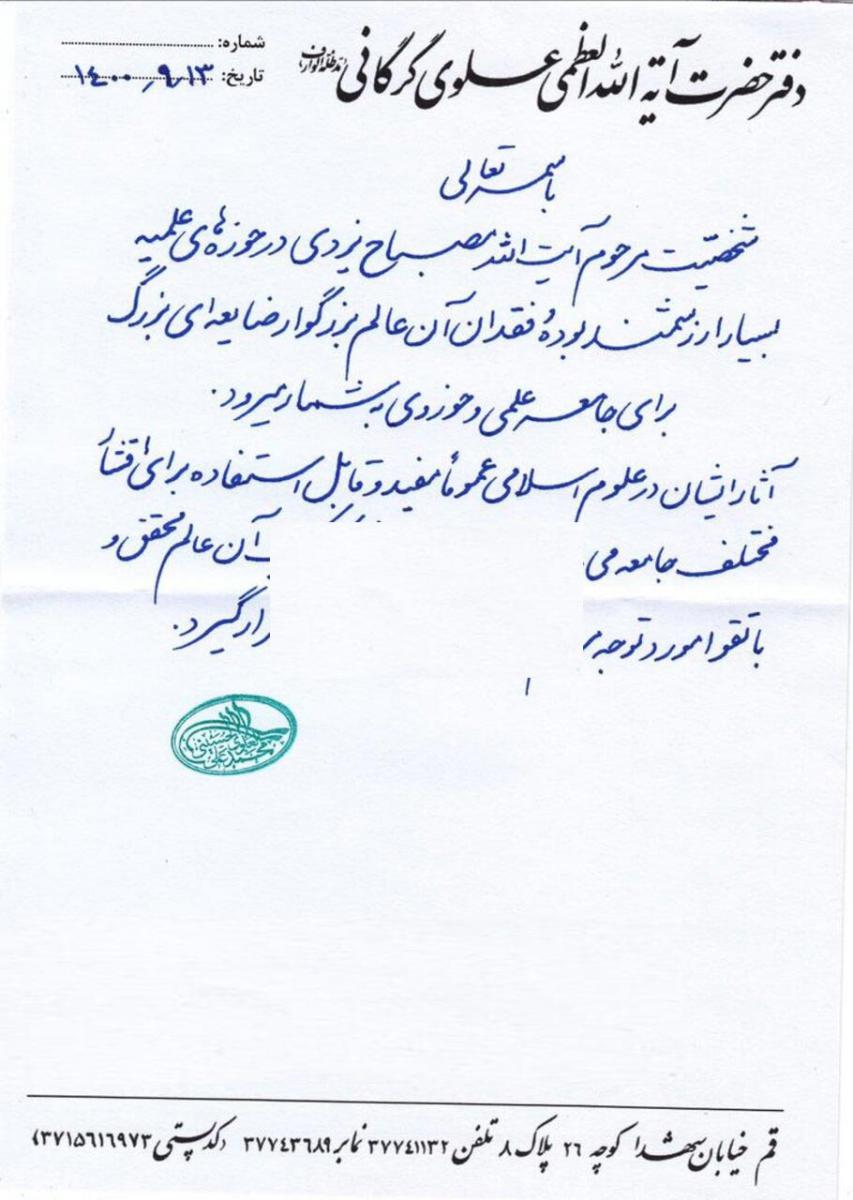 دفتر حضرت آیة الله العظمی علوی گرگانی (مدظله الوارف)
شماره:
تاریخ: ۱۴۰۰٫۹٫۱۳
باسمه تعالی
شخصیّت مرحوم آیت الله مصباح یزدی در حوزه‌های علمیه
بسیار ارزشمند بوده و فقدان آن عالم بزرگوار ضایعه ای بزرگ
برای جامعه علمی و حوزوی به شمار میرود.
آثار ایشان در علوم اسلامی عموماً مفید و قابل استفاده برای اقشار
مختلف جامعه می آن عالم محقق و
با تقوا مورد توجه گیرد.
قم خیابان شهدا کوچه ۲۶ پلاک ۸ تلفن ۳۷۷۴۱۱۳۲ نمابر ۳۷۷۴۳۶۸۹ کدپستی ۳۷۱۵۶۱۶۹۷۳